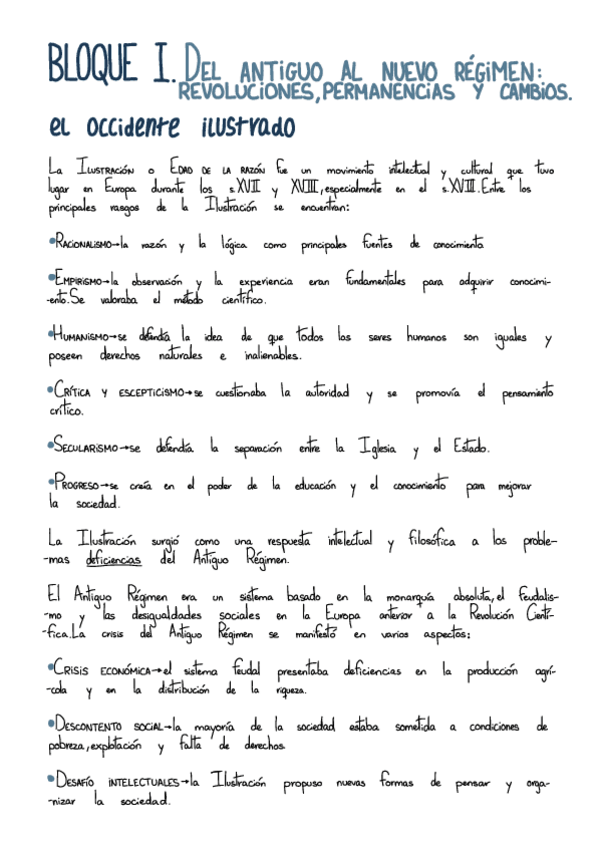 BLOQUE I. DEL ANTIGUO AL NUEVO RÉGIMEN:
REVOLUCIONES, PERMANENCIAS Y CAMBIOS.
el occidente ilustrado
La ILUSTRACIÓN o EDAD DE LA RAZÓN fue un movimiento intelectual y cultural que tuvo
lugar en Europa durante los s.XVII y XVIII, especialmente en el s.XVIII. Entre los
principales rasgos de la Ilustración se encuentran:
•RACIONALISMO→la razón y la lógica como principales fuentes de conocimiento
•EMPIRISMO→la observación y la experiencia eran fundamentales para adquirir conocimi-
-ento. Se valoraba el método científico.
•HUMANISMO→se defendía la idea de que todos los seres humanos son iguales y
poseen derechos naturales e inalienables.
•CRÍTICA Y ESCEPTICISMO→se cuestionaba la autoridad y se promovía el pensamiento
crítico.
•SECULARISMO→se defendía la separación entre la Iglesia y el Estado.
•PROGRESO→se creía en el poder de la educación y el conocimiento para mejorar
la sociedad.
La Ilustración surgió como una respuesta intelectual y filosófica a los proble-
-mas deficiencias del Antiguo Régimen.
El Antiguo Régimen era un sistema basado en la monarquía absoluta, el feudalis-
-mo y las desigualdades sociales en la Europa anterior a la Revolución Cientí-
-fica. La crisis del Antiguo Régimen se manifestó en varios aspectos:
•CRISIS ECONÓMICA→el sistema feudal presentaba deficiencias en la producción agrí-
-cola y en la distribución de la riqueza.
•DESCONTENTO SOCIAL→la mayoría de la sociedad estaba sometida a condiciones de
pobreza, explotación y falta de derechos
•DESAFÍO INTELECTUALES→la Ilustración propuso nuevas formas de pensar y orga-
-nizar la sociedad.